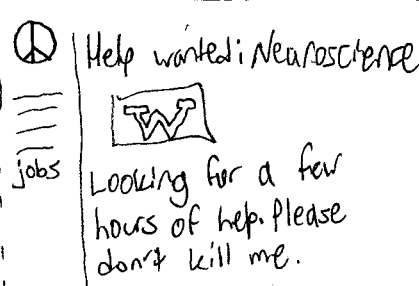 Help wanted: Neuroscience
W
jobs
Looking for a few
hours of help. Please
don't kill me.